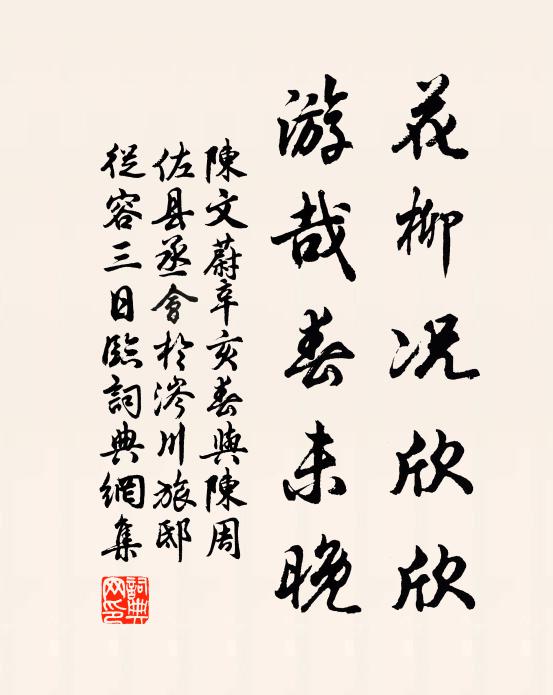 花柳况欣欣
游哉春未晚
陳文蔚辛亥春與陳周
佐县丞會於涔川旅邸
從容三日臨詞典網集
詞典网印